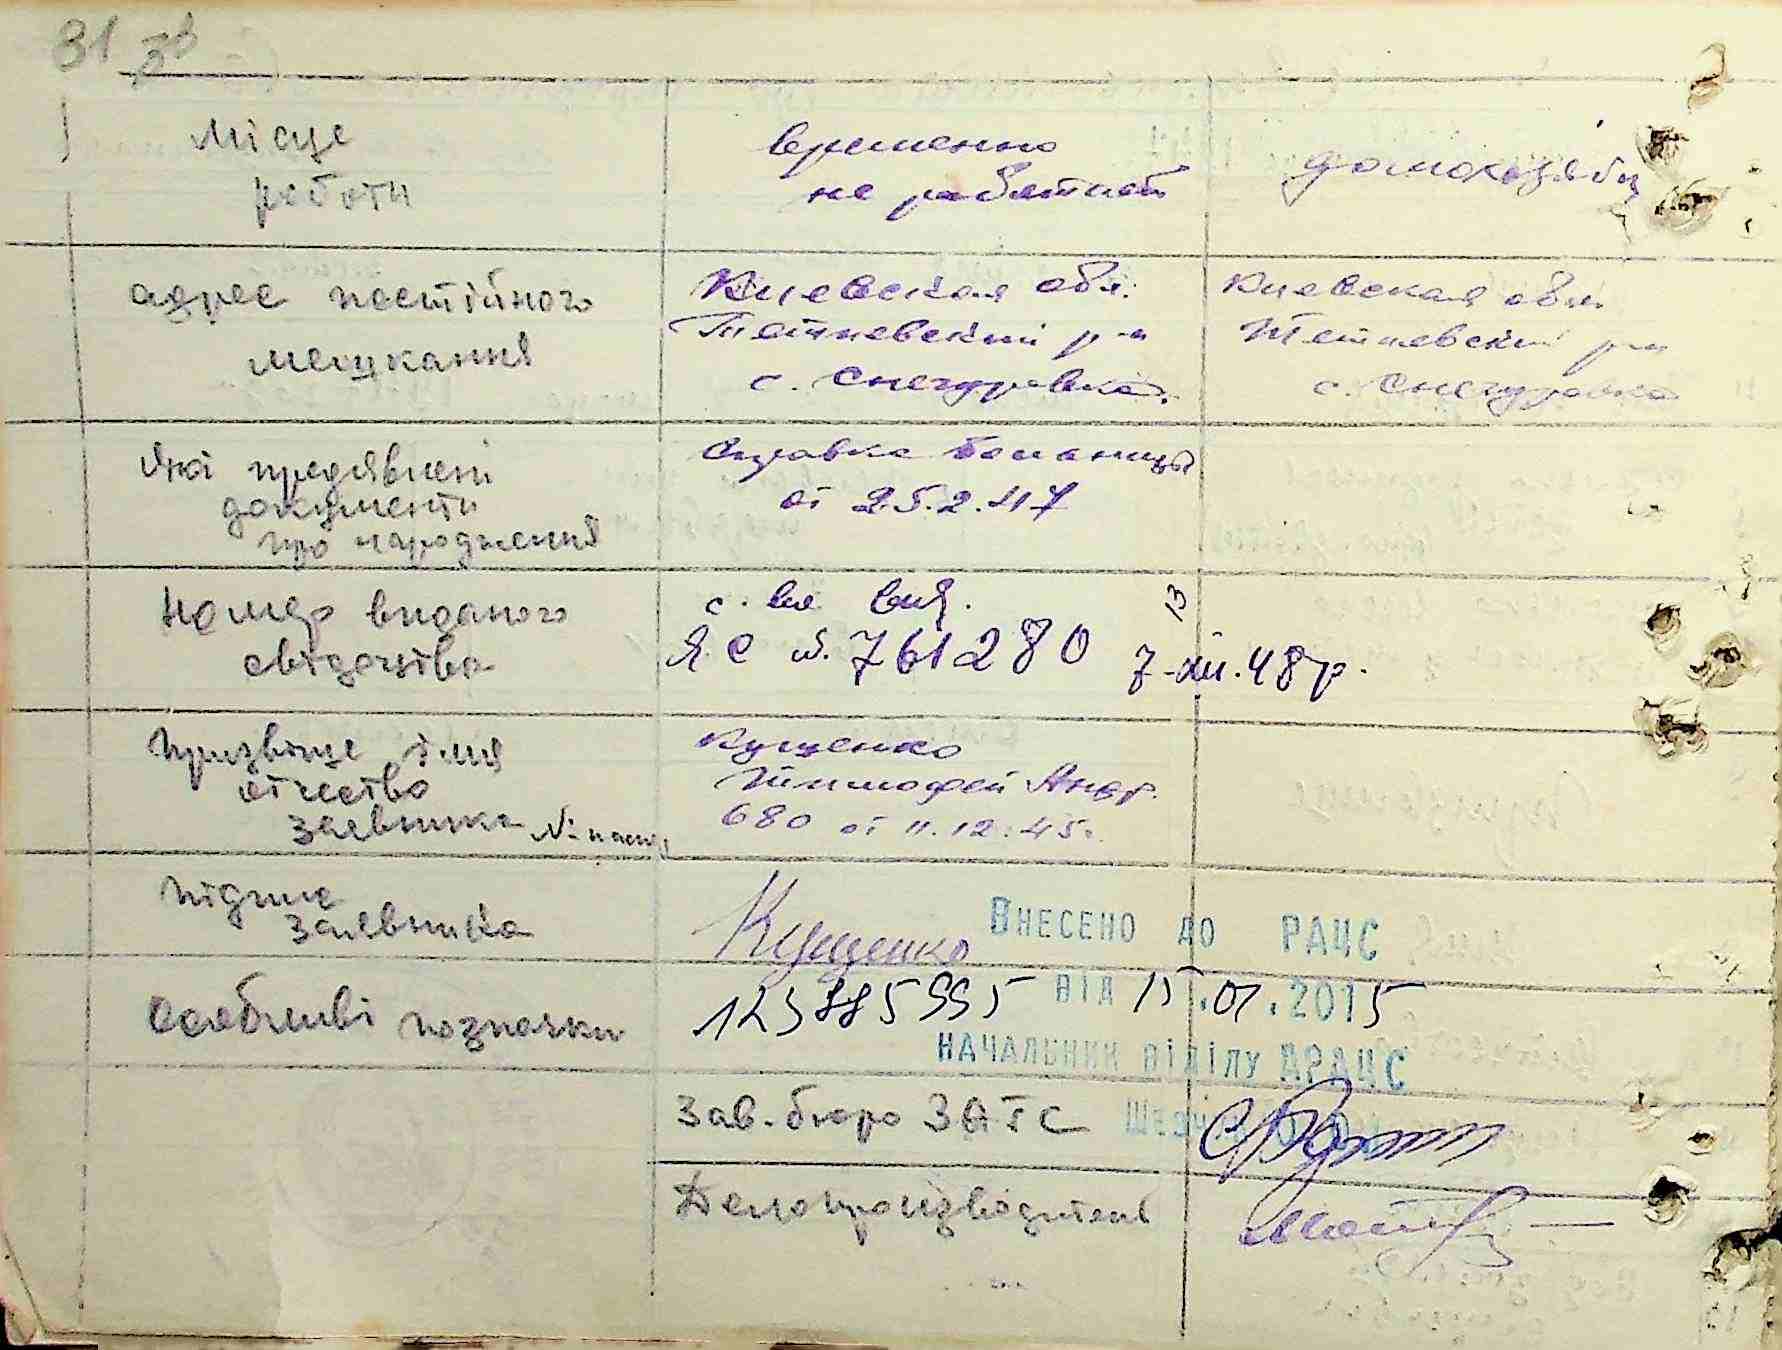 31 зв
Місце
роботи
временно
не работает
домохозяйка
адрес постійного
мешкання
Киевская обл.
Тетиевский р-н
с. Снегуровка.
Киевская обл
Тетиевский р-н
с. Снегуровка
Які предявлені
документи
про народження
Справка больницы
от 25.2.47
Номер виданого
свідоцтва
с.
ЯС №. 761280 7-XII.48р.
13
Призвіще імя
отчество
заявника № пасп.
Кущенко
Тимофей Андр.
680 от 11.12.45.
Підпис
заявника
Кущенко
Внесено до РАЦС
Особливі позначки
від 15.01.2015
начальник відділу ДРАЦС
Зав. бюро ЗАГС
Делопроизводитель